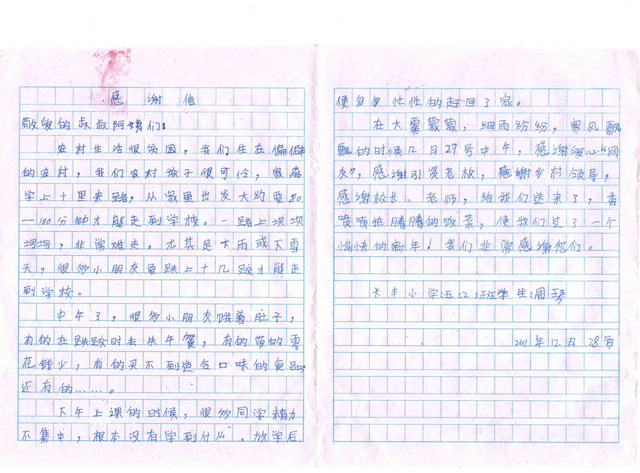 感谢信
敬爱的叔叔阿姨们:
农村生活很贫困,我们住在偏僻
的农村,我们农村孩子很可怜,离
学上十里来路,从家里出发大约要80
—100分钟才能走到学校。一路上坝坝
坷坷,非常难走。尤其是大雨或下雪
天,很多小朋友要跌上十几跤才能走
到学校。
中午了,很多小朋友饿着肚子,
有的在跌跤时丢失午餐,有的带的零
花钱少,有的买不到适合口味的食品,
还有的……。
下午上课的时候,很多同学精力
不集中,根本没有学到什么。放学后
便匆匆忙忙的赶回了家。
在大雾蒙蒙,细雨纷纷,寒风飘
飘的时候12月29号中午,感谢爱心网
友,感谢引资老板,感谢乡村领导,
感谢校长、老师,给我们送来了,香
喷喷热腾腾的饭菜,使我们过了一个
愉快的新年!我们非常感谢您们。
卡丰小学五(2)班学生:周琴
2011年12月28号